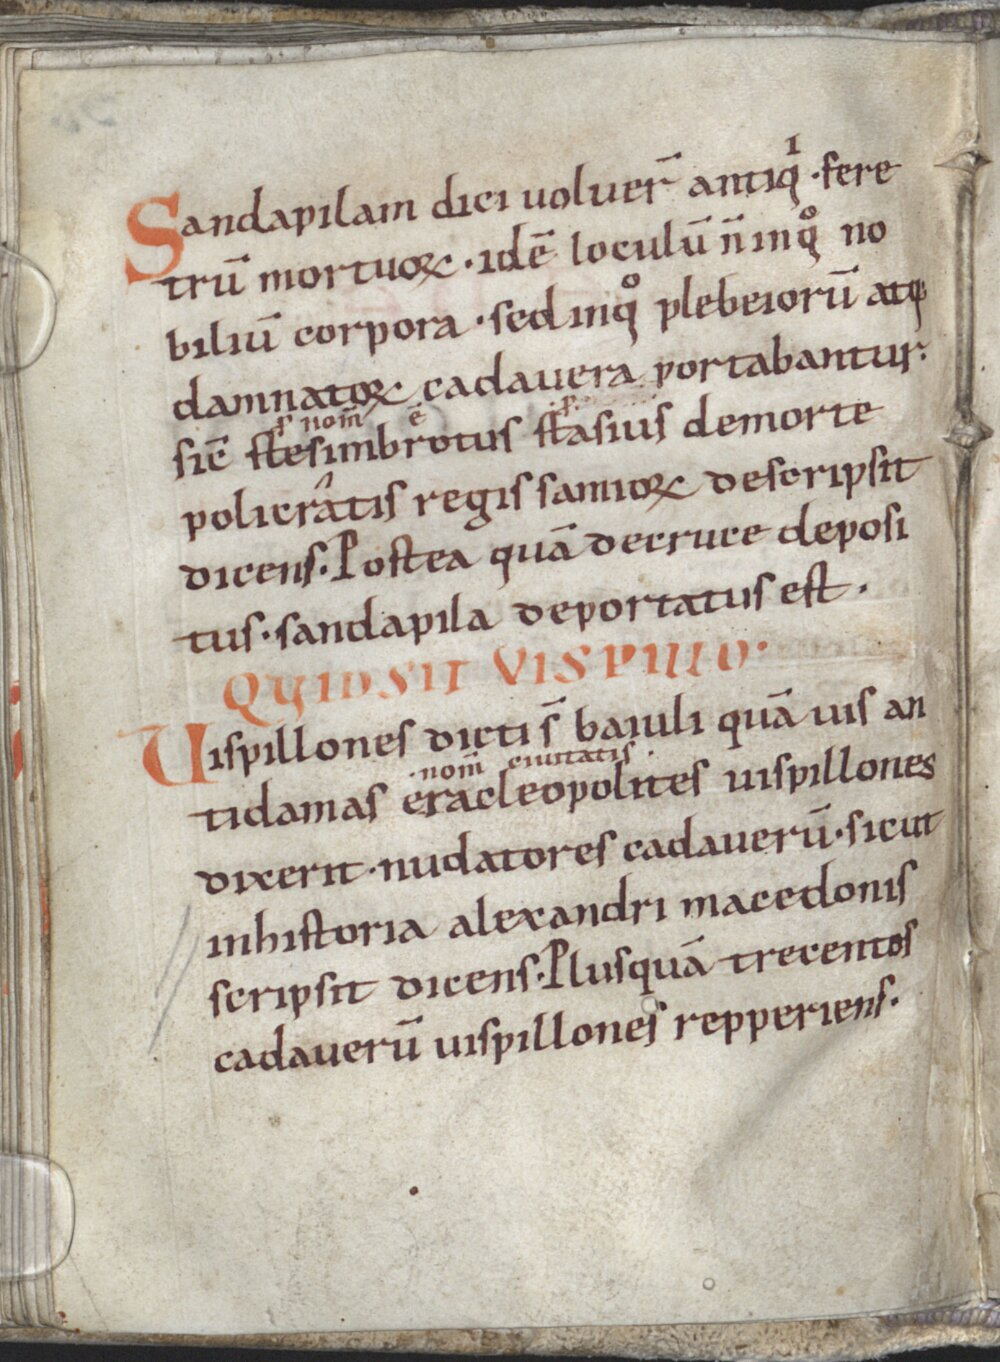 Sandapilam dici uoluer̄ antiqͥ · fere
trū mortuoꝝ · idē loculū n̄ in qͦ no
biliū corpora · sed in qͦ plebeiorū atqꝫ
damnatoꝝ cadauera portabantur·
nom̄ ē
sic̄ stesimbrotus stasius demorte
policratis regis samioꝝ descripsit
dicens · Postea quā decruce deposi
tus · sandapila deportatus est ·
QUID SIT VISPILLO ·
Uispillones dicti s̄ baiuli quā uis an
· nom̄ ciuitatis ·
tidamas eracleopolites uispillones
dixerit · nudatores cadauerū · sicut
inhistoria alexandri macedonis
scripsit dicens · Plusquā trecentos
cadauerū uispillones repperiens ·